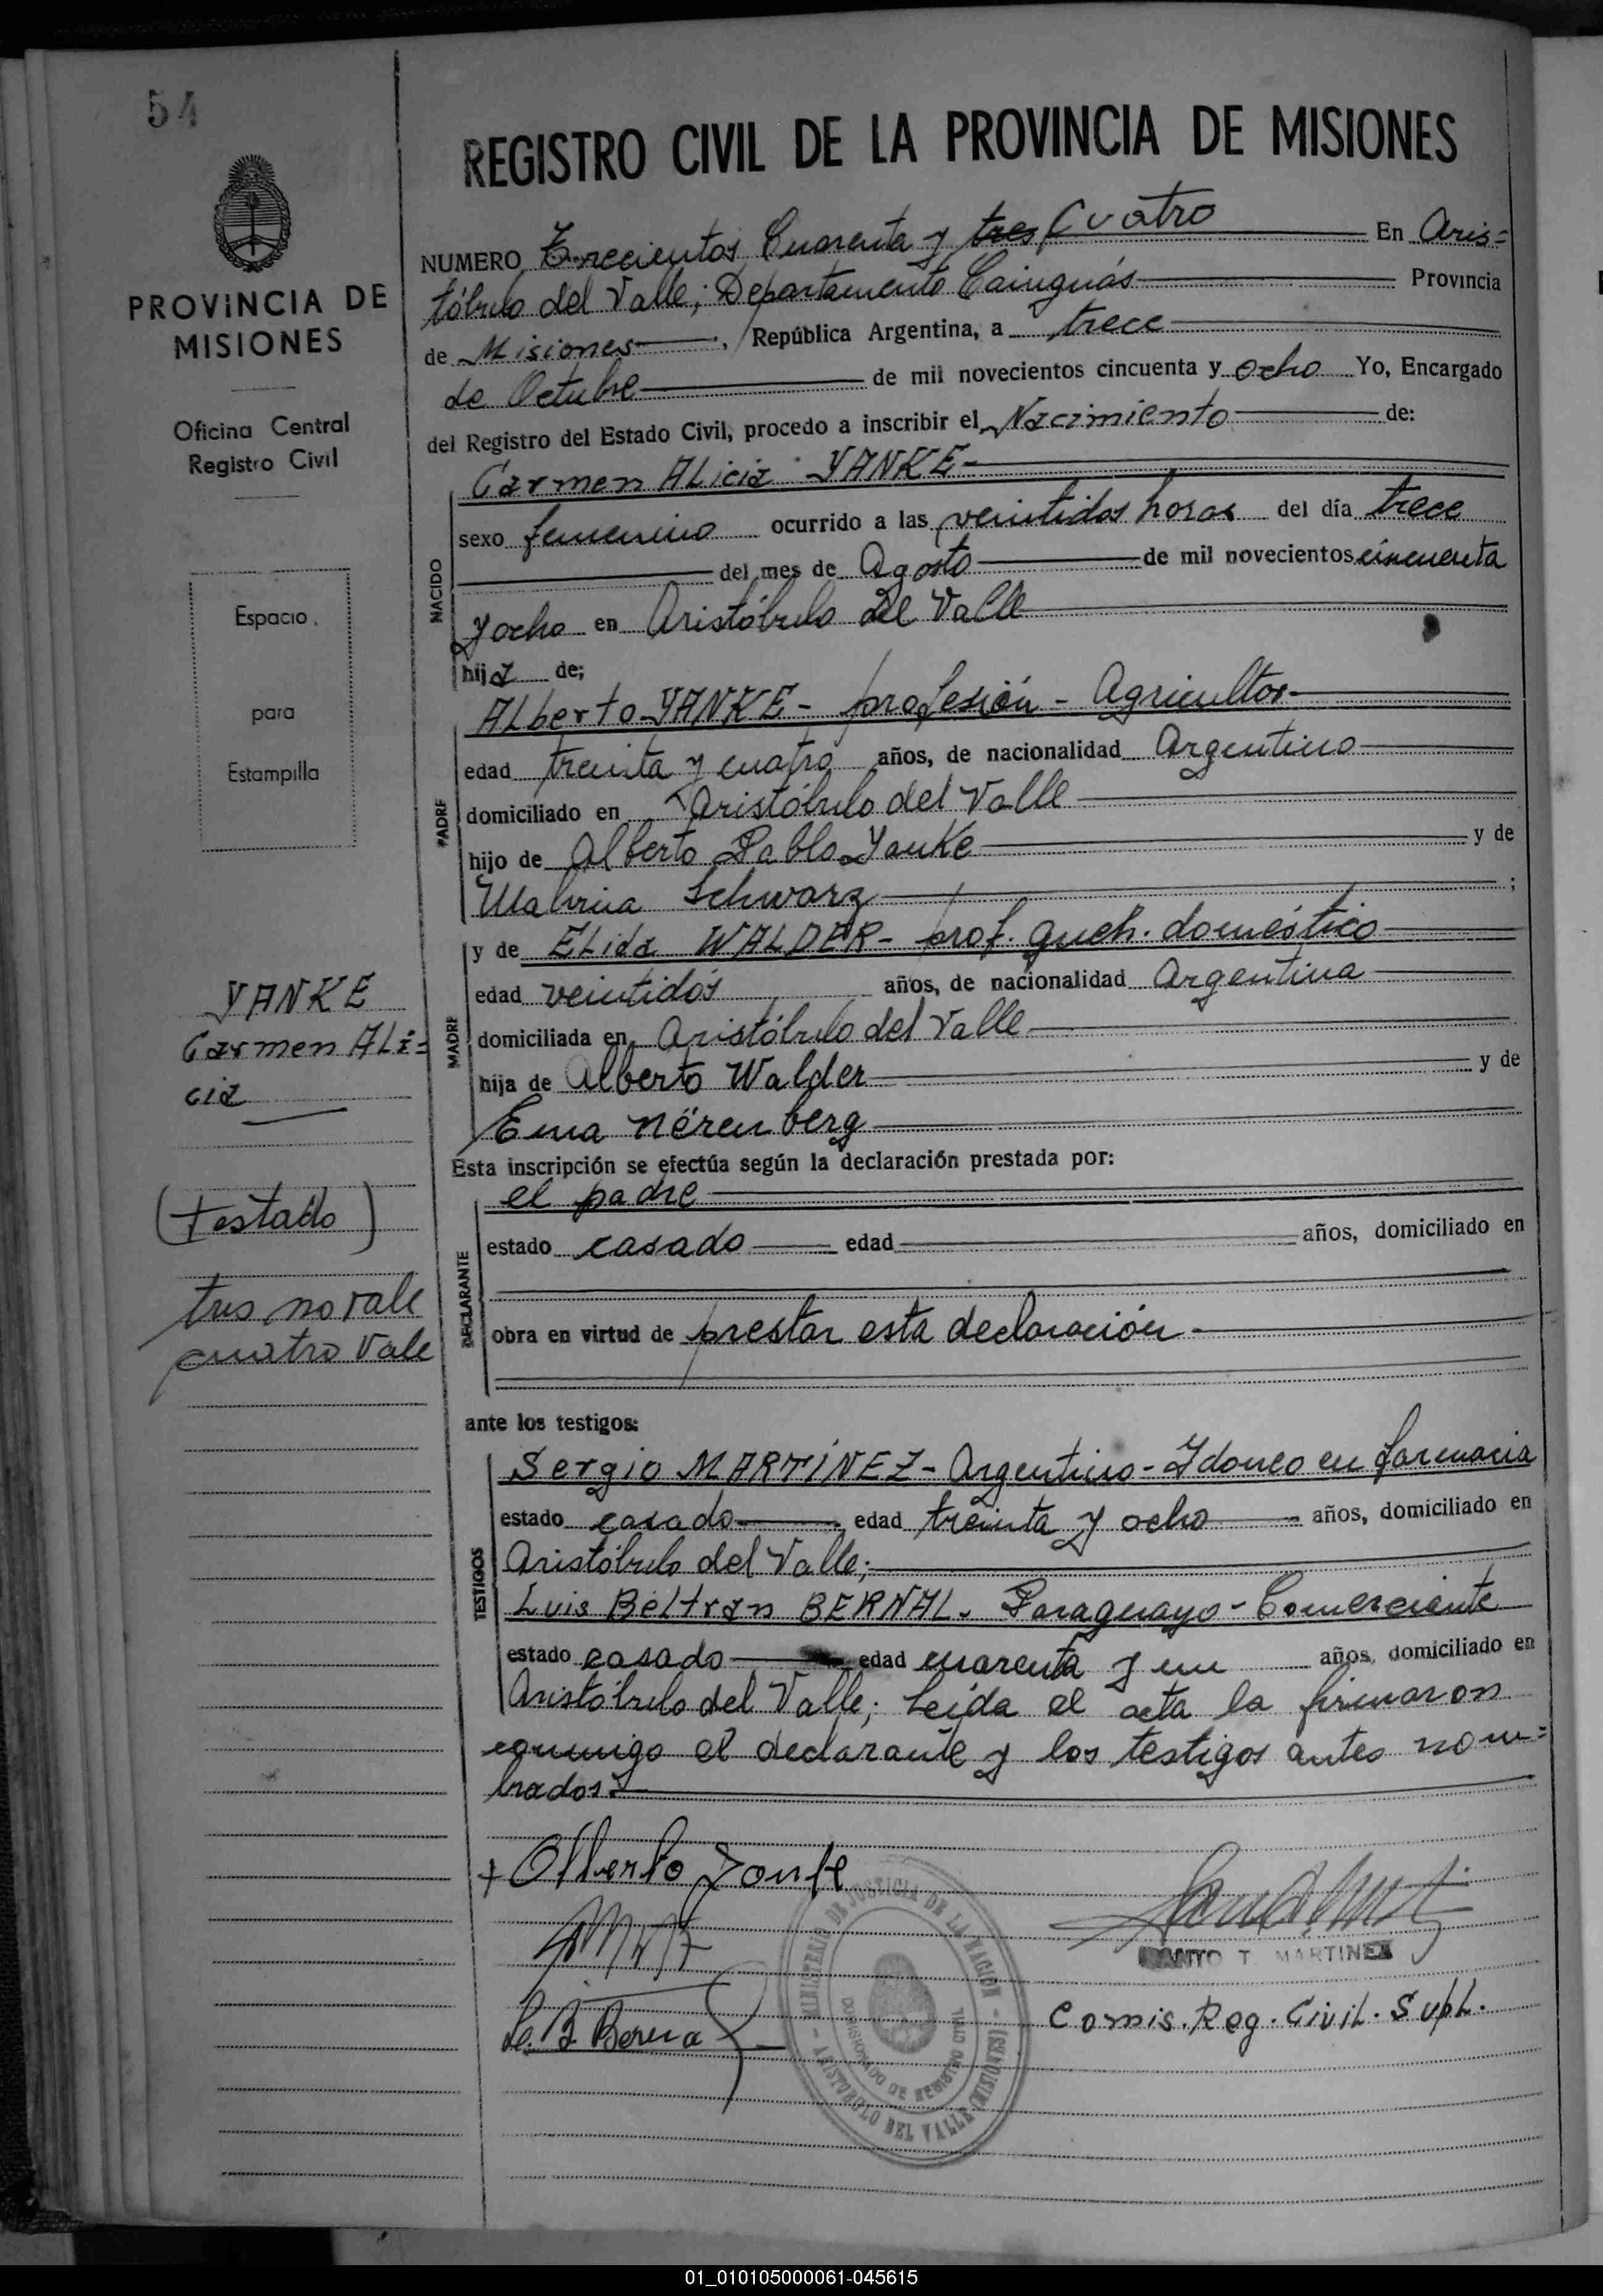 54
PROVINCIA DE
MISIONES
Oficina Central
Registro Civil
Espacio
para
Estampilla
YANKE
Carmen ALi=
cia
(testado)
tres no vale
cuatro vale
REGISTRO CIVIL DE LA PROVINCIA DE MISIONES
NUMERO Trecientos Cuarenta y tres Cuatro En Aris=
tóbulo del Valle; Departamento Cainguás Provincia
de Misiones, República Argentina, a trece
de Octubre de mil novecientos cincuenta y ocho Yo, Encargado
del Registro del Estado Civil, procedo a inscribir el Nacimiento de:
NACIDO
Carmen ALicia YANKE-
sexo femenino ocurrido a las veintidos horas del día trece
del mes de Agosto de mil novecientos cincuenta
y ocho en Aristóbulo del Valle
hija de;
PADRE
ALberto YANKE- profesión- Agricultor-
edad treinta y cuatro años, de nacionalidad Argentino
domiciliado en Aristóbulo del Valle
hijo de Alberto Pablo Yanke y de
Schwarz ;
MADRE
y de ELida WALDER- prof. queh. doméstico
edad veintidós años, de nacionalidad Argentina
domiciliada en Aristóbulo del Valle
hija de Alberto Walder y de
Ema Nërenberg
Esta inscripción se efectúa según la declaración prestada por:
DECLARANTE
el padre
estado casado edad años, domiciliado en
obra en virtud de prestar esta declaración-
ante los testigos:
TESTIGOS
Sergio MARTÍNEZ- Argentino- Idoneo en farmacia
estado casado edad treinta y ocho años, domiciliado en
Aristóbulo del Valle;
Luis Beltran BERNAL- Paraguayo- Comerciente
estado casado edad cuarenta y un años, domiciliado en
Aristóbulo del Valle; Leida el acta la firmaron
conmigo el declarante y los testigos antes nom=
brados.-
+ Alberto Yanke
L. B Bernal
SANTO T MARTINEZ
Comis. Reg. Civil. SupL.
MINISTERIO DE JUSTICIA DE LA NACION - ARISTOBULO DEL VALLE (MISIONES)
COMISIONADO DE REGISTRO CIVIL
01_010105000061-045615